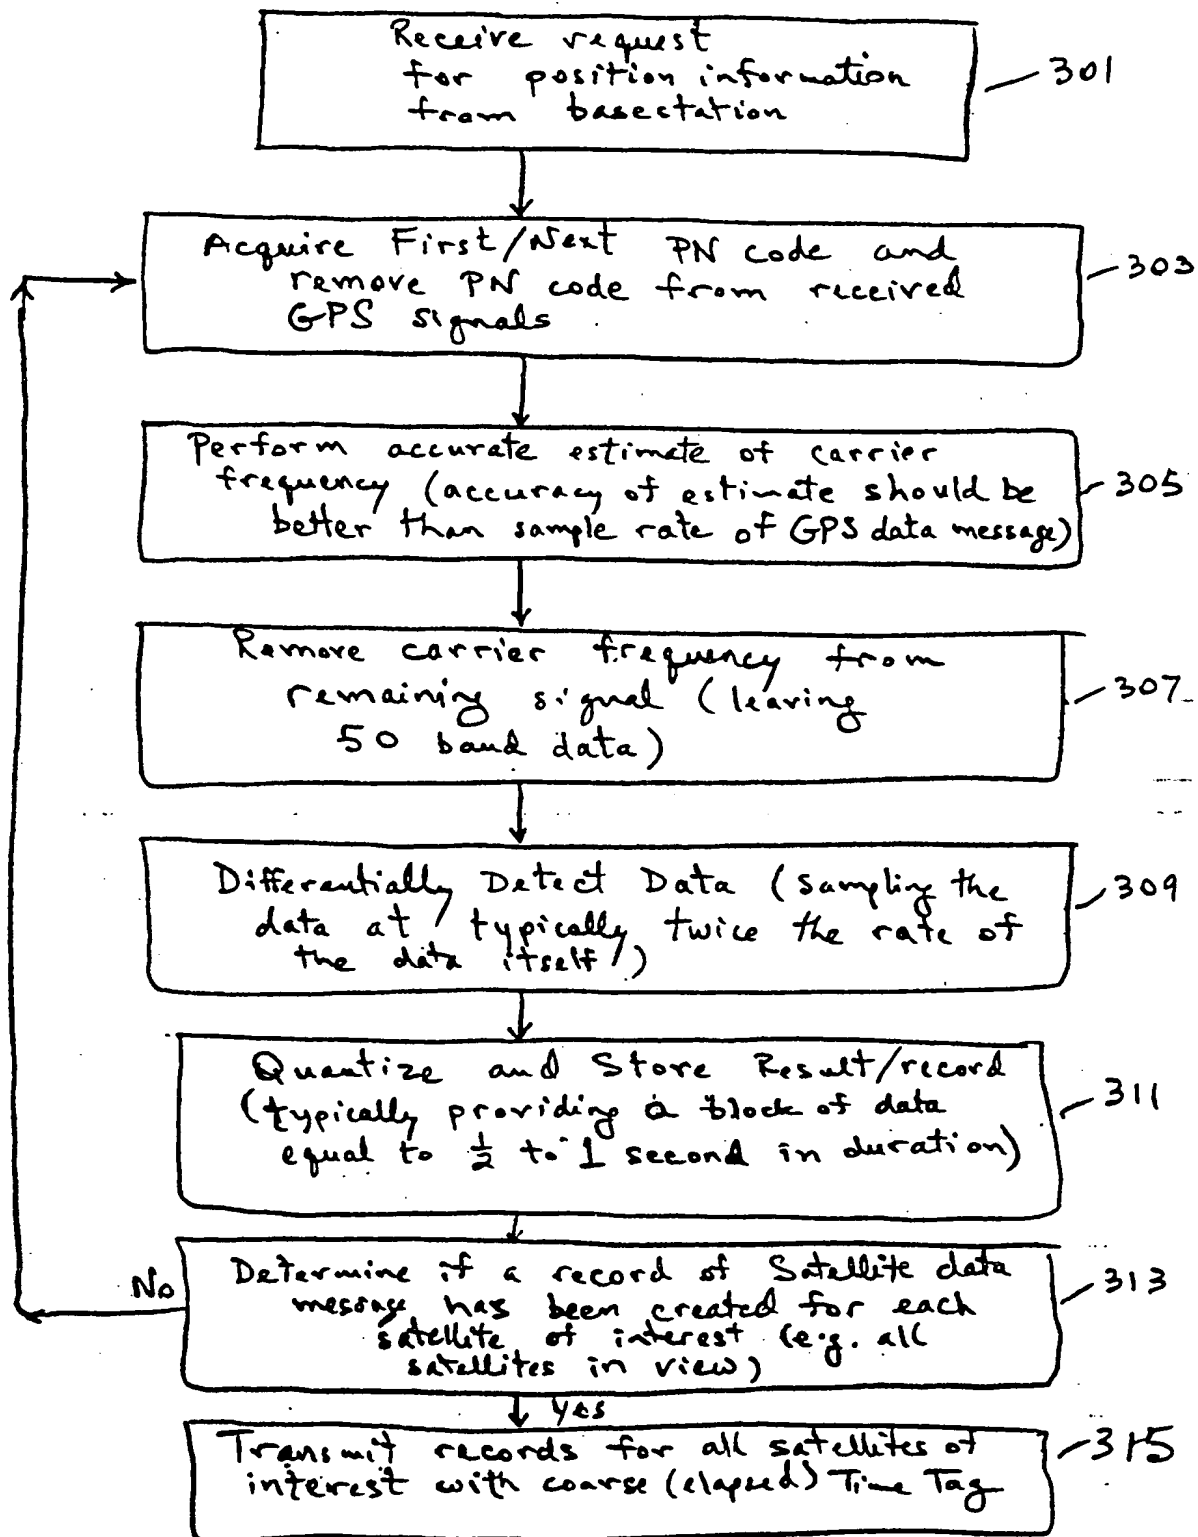 Receive request
for position information
from basestation
301
Acquire First/Next PN code and
remove PN code from received
GPS signals
303
Perform accurate estimate of carrier
frequency (accuracy of estimate should be
better than sample rate of GPS data message)
305
Remove carrier frequency from
remaining signal (leaving
50 baud data)
307
Differentially Detect Data (sampling the
data at typically twice the rate of
the data itself)
309
Quantize and Store Result/record
(typically providing a block of data
equal to ½ to 1 second in duration)
311
No
Determine if a record of Satellite data
message has been created for each
satellite of interest (e.g. all
satellites in view)
313
Yes
Transmit records for all satellites of
interest with coarse (elapsed) Time Tag
315